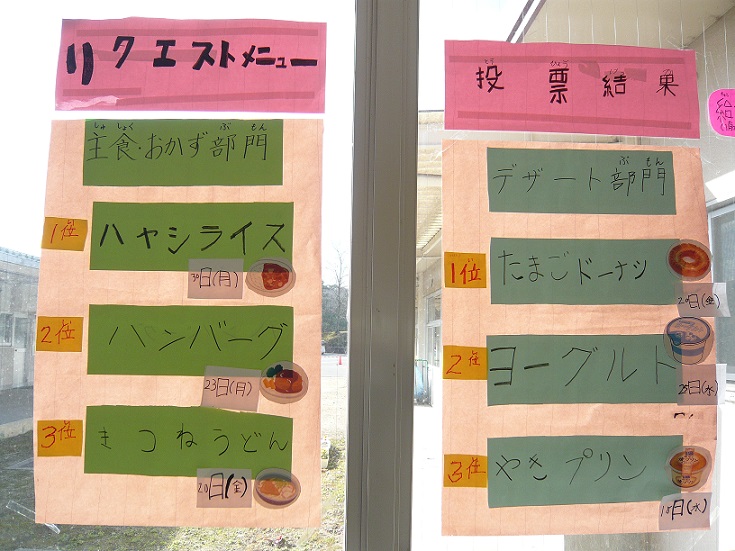 リクエストメニュー
しゅ しょく ぶ もん
主食・おかず部門
1位
ハヤシライス
30日(月)
2位
ハンバーグ
23日(月)
3位
きつねうどん
20日(金)
とう ひょう
投票結果
ぶ もん
デザート部門
1位
たまごドーナツ
20日(金)
2位
ヨーグルト
25日(水)
3位
やきプリン
18日(水)